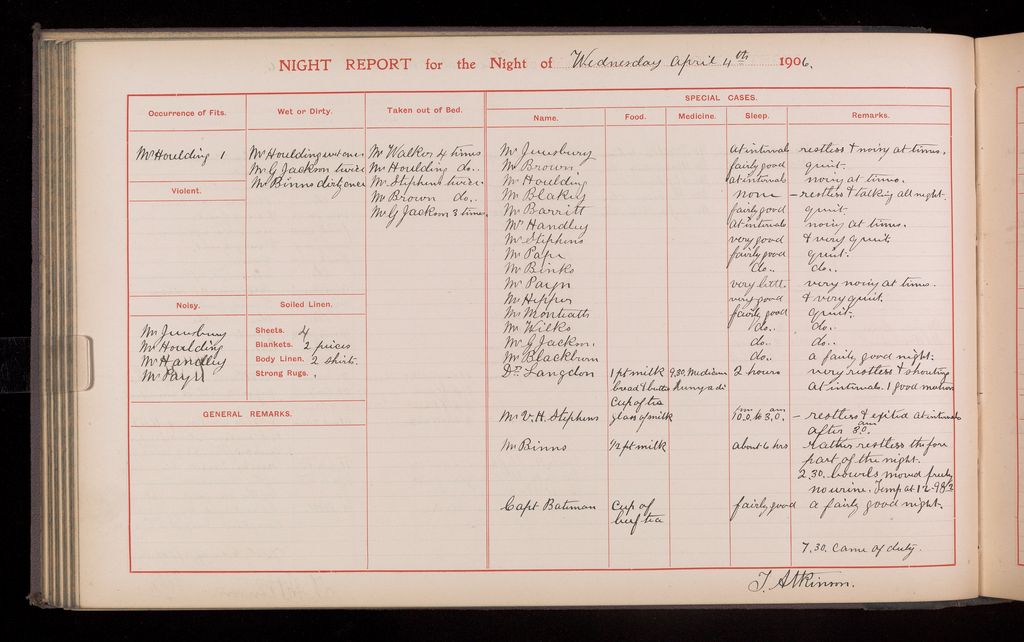 NIGHT REPORT for the Night of Wednesday April 4th 1906.
Occurrence of Fits.
Mr Houlding 1
Violent.
Noisy.
Mr Jewsbury
Mr Houlding
Mr Handley
Mr Payn
Wet or Dirty.
Mr Houlding wet once
Mr G Jackson twice
Mr Binns dirty once
Soiled Linen.
Sheets. 4
Blankets. 2 pieces
Body Linen. 2 shirts.
Strong Rugs.
GENERAL REMARKS.
Taken out of Bed.
Mr Walker 4 times
Mr Houlding do..
Mr Stephens twice.
Mr Brown do..
Mr G Jackson 3 times.
SPECIAL CASES.
Name. Food. Medicine. Sleep. Remarks.
Mr Jewsbury at intervals restless & noisy at times.
Mr Brown fairly good quiet.
Mr Houlding at intervals noisy at times.
Mr Blakey none – restless & talking all night.
Mr Barritt fairly good quiet.
Mr Handley at intervals noisy at times.
Mr Stephens very good & very quiet
Mr Pape fairly good quiet.
Mr Binks do.. do..
Mr Payn very little. very noisy at times.
Mr Hepper very good & very quiet.
Mr fairly good quiet.
Mr Wilks do.. do..
Mr G Jackson. do.. do..
Mr Blackburn do.. a fairly good night.
Dr. Langdon 1 pt milk 9.30. Medicine 2 hours very restless & shouting
bread & butter at intervals. 1 good motion
Cup of tea
Mr V. H. Stephens glass of milk 10.0. pm to 3.0. am – restless & exited at intervals
after 3.0. am
Mr Binns 1/2 pt milk about 6 hrs Rather restless the fore
part of the night.
2.30. bowels moved freely
no urine. Temp at 12 - 98.3
Capt Bateman Cup of fairly good a fairly good night.
beef tea
7.30. came of duty.
T. Atkinson.